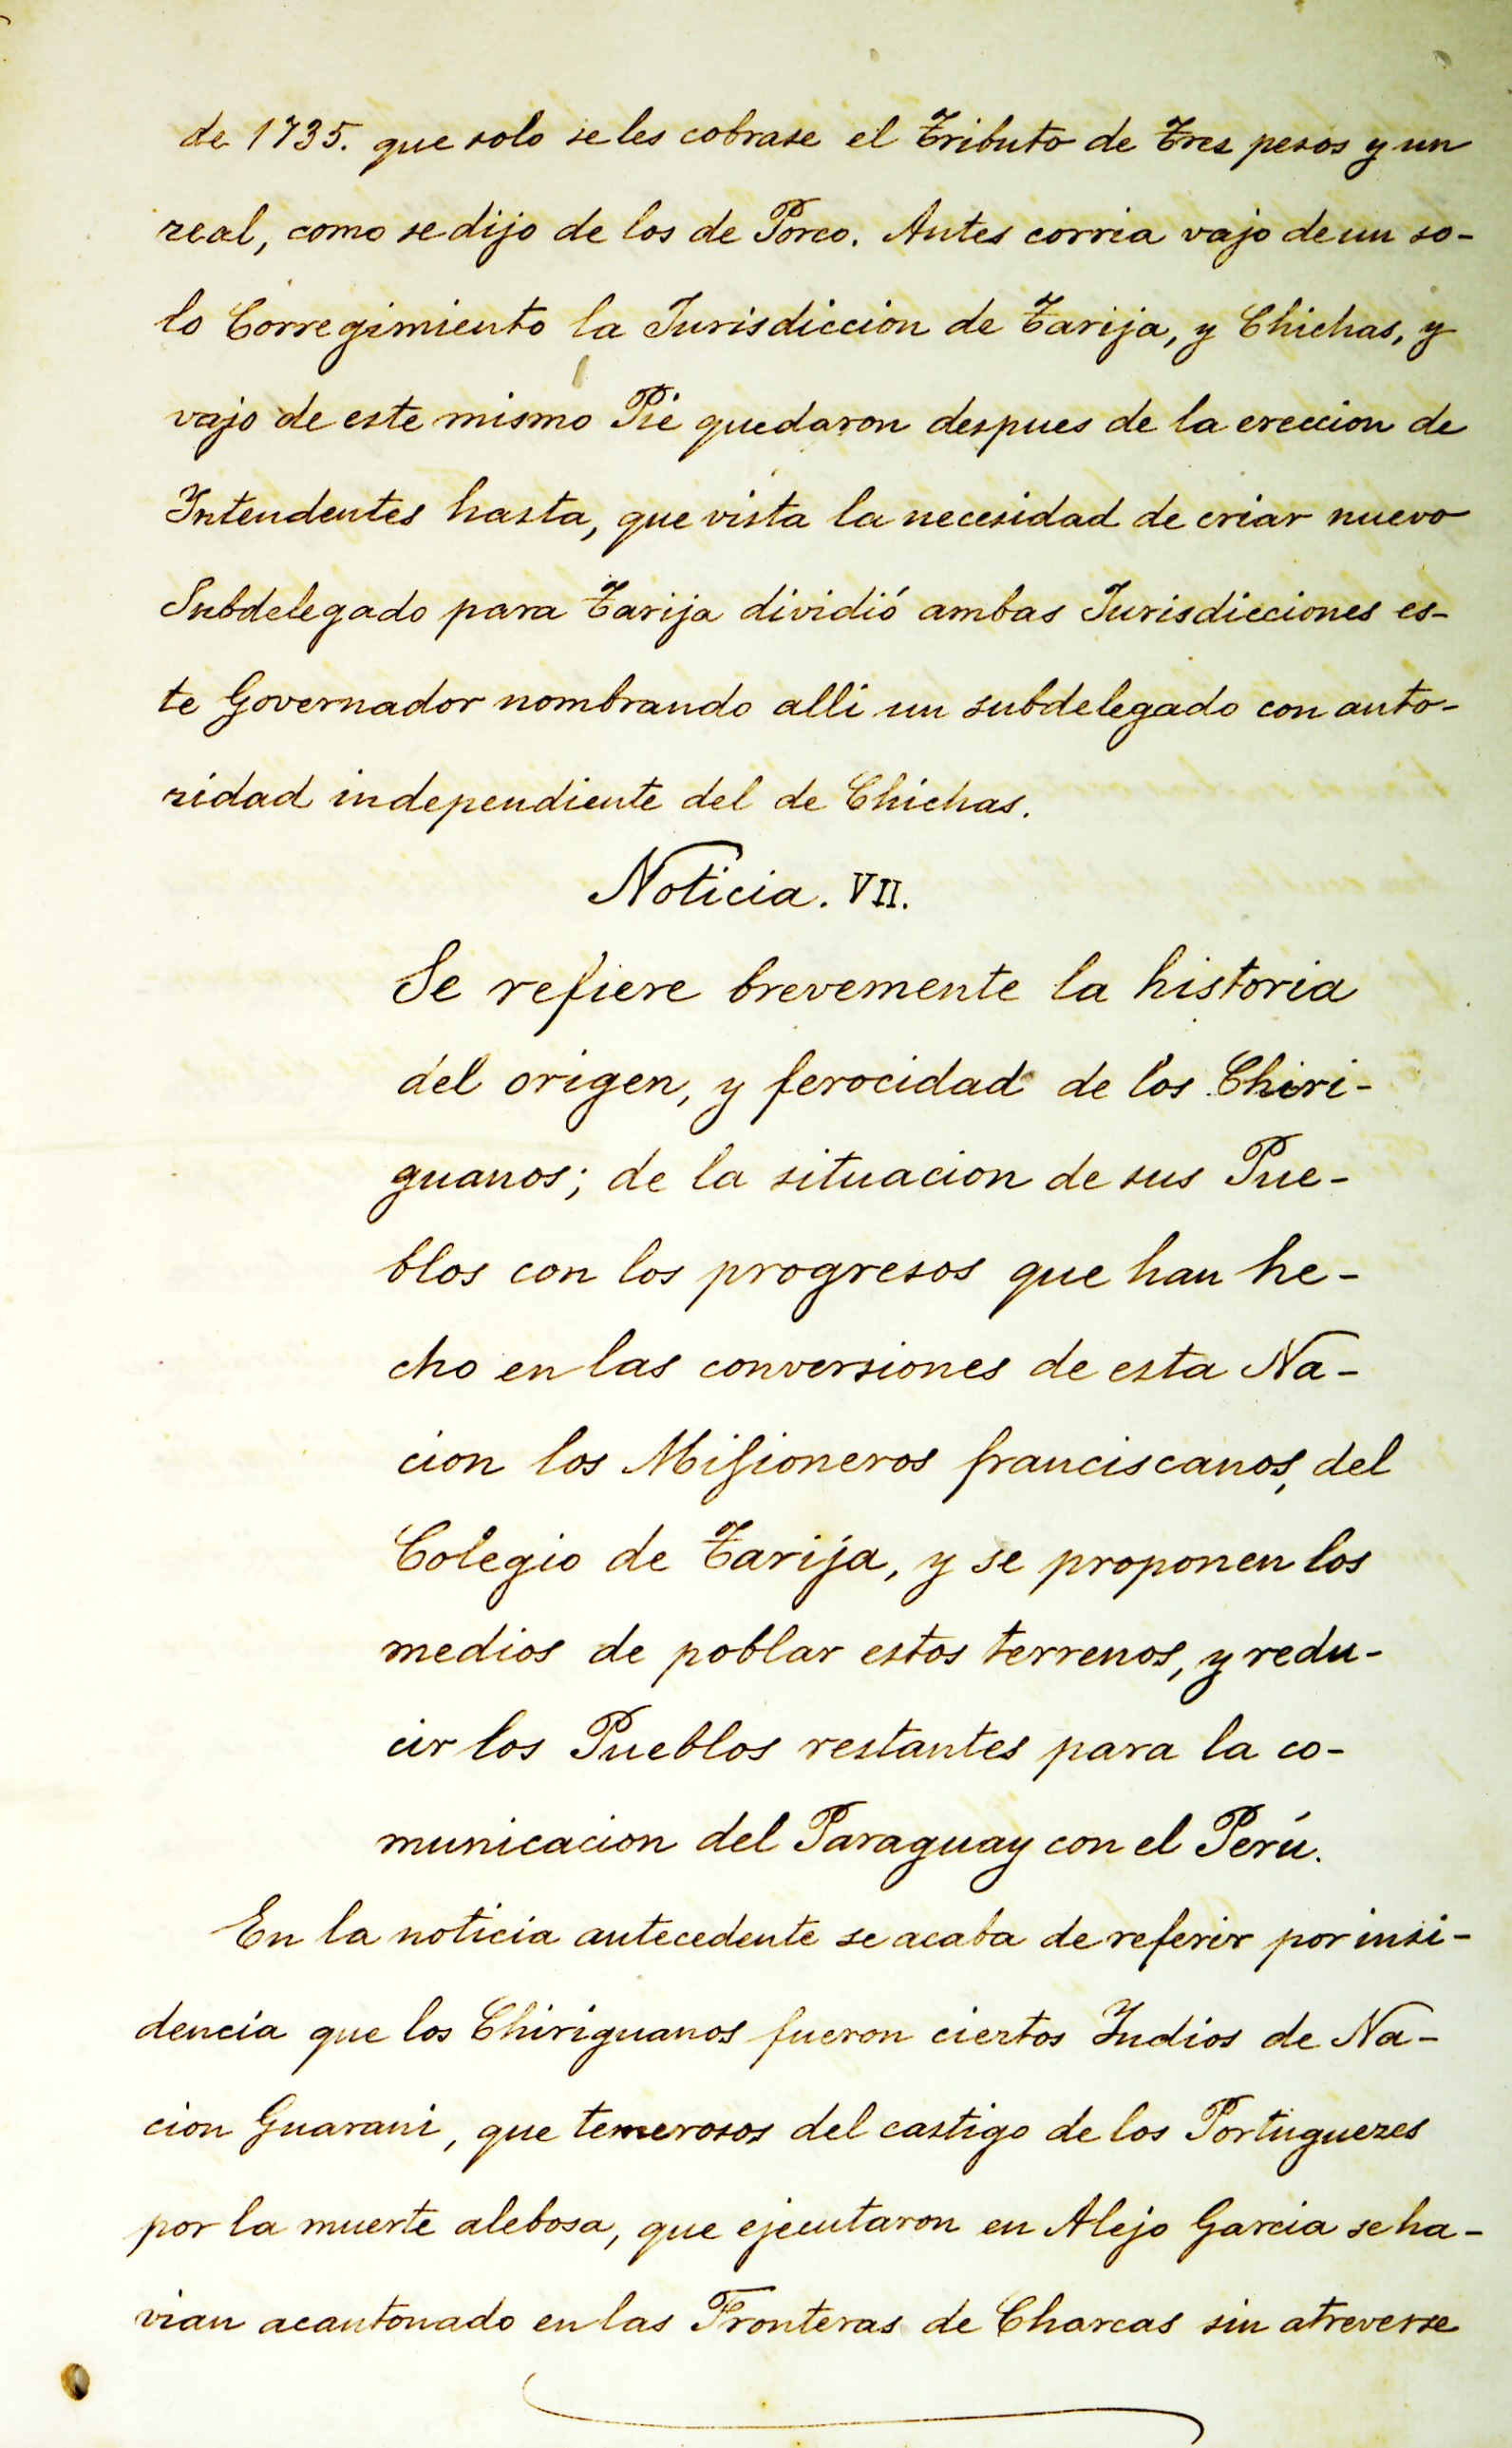 de 1735. que solo se les cobrase el Tributo de Tres pesos y un
real, como se dijo de los de Porco. Antes corria vajo de un so-
lo Corregimiento la Jurisdiccion de Tarija, y Chichas, y
vajo de este mismo Pie quedaron despues de la ereccion de
Intendentes hasta, que vista la necesidad de criar nuevo
Subdelegado para Tarija dividió ambas Jurisdicciones es-
te Governador nombrando alli un subdelegado con auto-
ridad independiente del de Chichas.
Noticia. VII.
Se refiere brevemente la historia
del origen, y ferocidad de los Chiri-
guanos; de la situacion de sus Pue-
blos con los progresos que han he-
cho en las conversiones de esta Na-
cion los Misioneros franciscanos, del
Colegio de Tarija, y se proponen los
medios de poblar estos terrenos, y redu-
cir los Pueblos restantes para la co-
municacion del Paraguay con el Perú.
En la noticia antecedente se acaba de referir por insi-
dencia que los Chiriguanos fueron ciertos Indios de Na-
cion Guarani, que temerosos del castigo de los Portuguezes
por la muerte alebosa, que ejecutaron en Alejo Garcia se ha-
vian acantonado en las Fronteras de Charcas sin atreverse